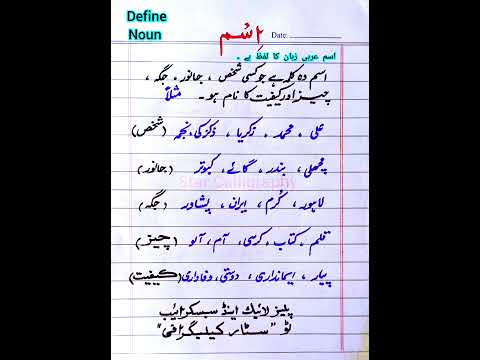 Define
Noun
اسم
Date:
اسم عربی زبان کا لفظ ہے ۔
اسم وہ کلمہ ہے جو کسی شخص ، جانور ، جگہ ،
چیز اور کیفیت کا نام ہو ۔ مثلاً
علی ، محمد ، زکریا ، ذکی ، نجمہ (شخص)
مچھلی ، بندر ، گائے ، کبوتر (جانور)
Star Calligraphy
لاہور ، کُرم ، ایران ، پشاور (جگہ)
قلم ، کتاب ، کرسی ، آم ، آلو (چیز)
پیار ، ایمانداری ، دوستی ، وفاداری (کیفیت)
پلیز لائیک اینڈ سبسکرائیب
ٹو "سٹار کیلیگرافی"